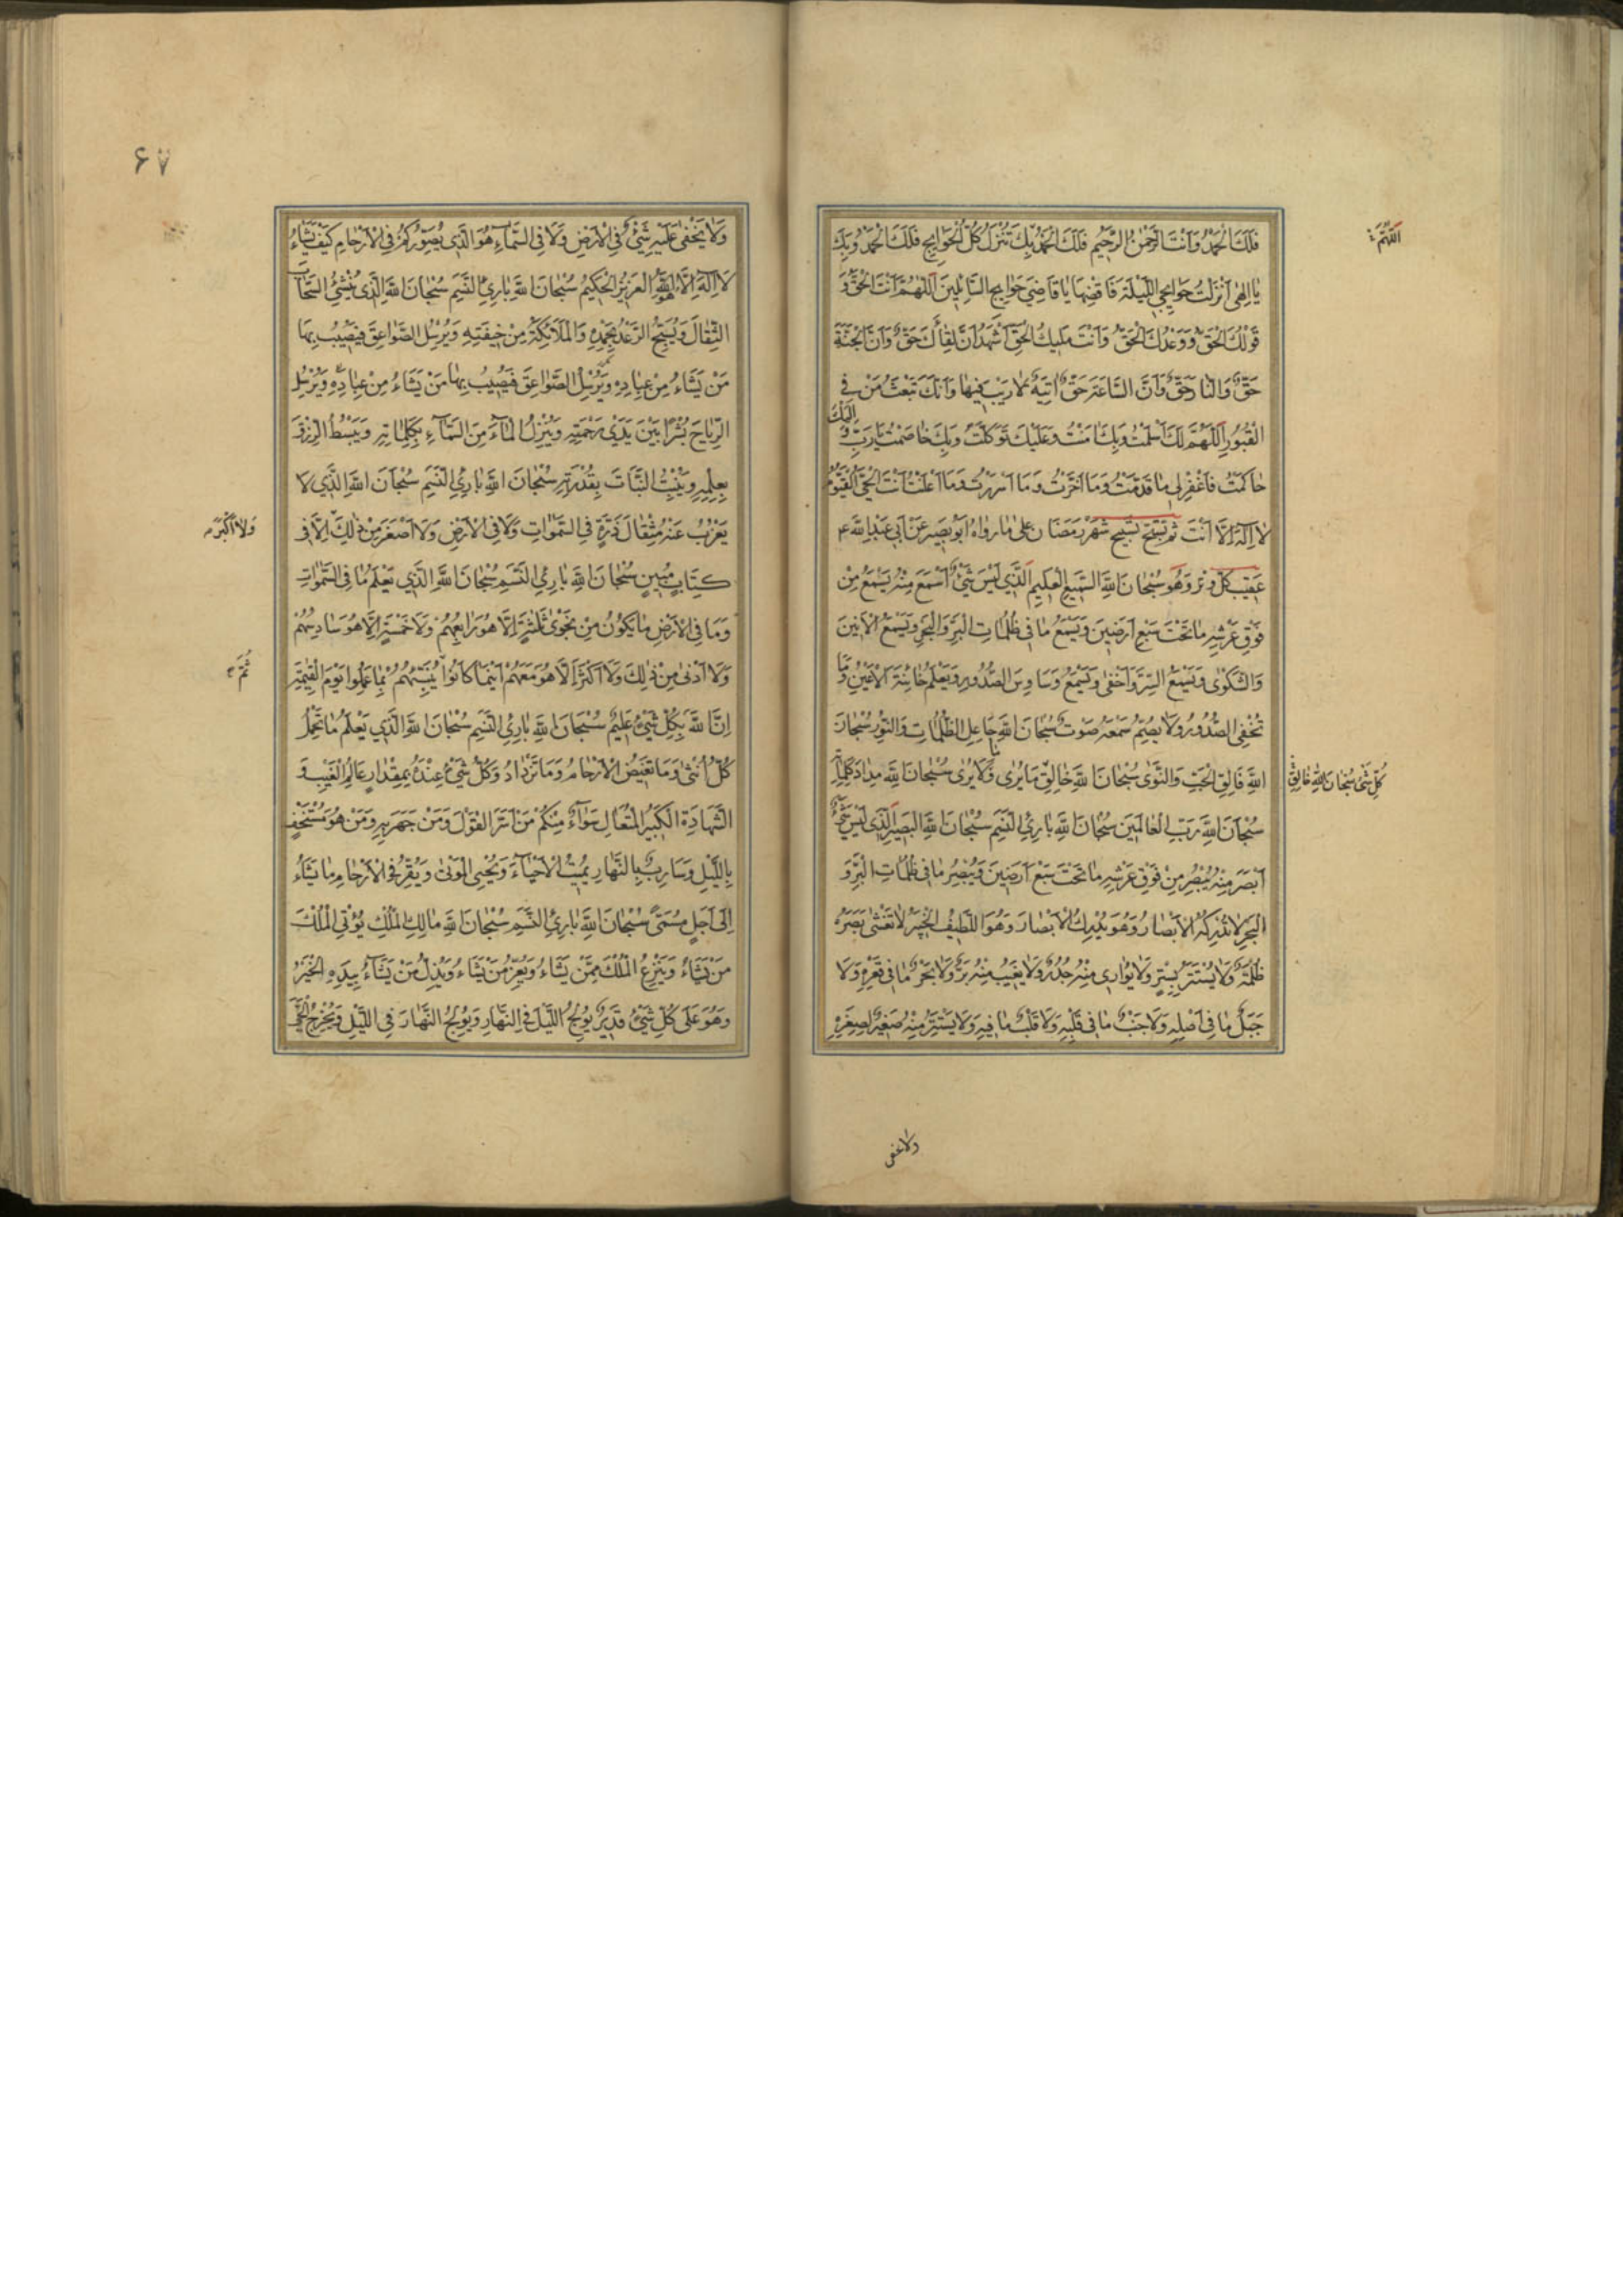 فَلَكَ الْحَمْدُ وَاَنْتَ الرَّحْمٰنُ الرَّحِيْمُ فَلَكَ الْحَمْدُ بِكَ تُنْزَلُ كُلُّ الْحَوَايِجِ فَلَكَ الْحَمْدُ وَبِكَ
اَللّٰهُمَّ
يَا اِلٰهِى اَنْزَلْتُ حَوَايِجِى اللَّيْلَةَ فَاقْضِهَا يَا قَاضِىَ حَوَايِجِ السَّائِلِيْنَ اَللّٰهُمَّ اَنْتَ الْحَقُّ وَ
قَوْلُكَ الْحَقُّ وَوَعْدُكَ الْحَقُّ وَاَنْتَ مَلِيْكُ الْحَقِّ اَشْهَدُ اَنَّ لِقَاءَكَ حَقٌّ وَاَنَّ الْجَنَّةَ
حَقٌّ وَالنَّارَ حَقٌّ وَاَنَّ السَّاعَةَ حَقٌّ اٰتِيَةٌ لَا رَيْبَ فِيْهَا وَاَنَّكَ تَبْعَثُ مَنْ فِى
الْقُبُوْرِ اَللّٰهُمَّ لَكَ اَسْلَمْتُ وَبِكَ اٰمَنْتُ وَعَلَيْكَ تَوَكَّلْتُ وَبِكَ خَاصَمْتُ يَا رَبِّ وَ اِلَيْكَ
حَاكَمْتُ فَاغْفِرْ لِى مَا قَدَّمْتُ وَمَا اَخَّرْتُ وَمَا اَسْرَرْتُ وَمَا اَعْلَنْتُ اَنْتَ الْحَىُّ الْقَيُّوْمُ
لَا اِلٰهَ اِلَّا اَنْتَ ثم تسبّح تسبيح شَهْرِ رَمَضَان على ما رواه ابو بصير عن ابى عبد الله ع
عقيب كلّ وتر وهو سُبْحَانَ اللهِ السَّمِيْعِ الْعَلِيْمِ اَلَّذِى لَيْسَ شَىْءٌ اَسْمَعَ مِنْهُ يَسْمَعُ مِنْ
فَوْقِ عَرْشِهِ مَا تَحْتَ سَبْعِ اَرَضِيْنَ وَيَسْمَعُ مَا فِى ظُلُمَاتِ الْبَرِّ وَالْبَحْرِ وَيَسْمَعُ الْاَنِيْنَ
وَالشَّكْوٰى وَيَسْمَعُ السِّرَّ وَاَخْفٰى وَيَسْمَعُ وَسَاوِسَ الصُّدُوْرِ وَيَعْلَمُ خَائِنَةَ الْاَعْيُنِ وَمَا
تُخْفِى الصُّدُوْرُ وَلَا يُصِمُّ سَمْعَهُ صَوْتٌ سُبْحَانَ اللهِ جَاعِلِ الظُّلُمَاتِ وَالنُّوْرِ سُبْحَانَ
اللهِ فَالِقِ الْحَبِّ وَالنَّوٰى سُبْحَانَ اللهِ خَالِقِ مَا يُرٰى وَمَا لَا يُرٰى سُبْحَانَ اللهِ مِدَادَ كَلِمَاتِهِ
كُلِّ شَىْءٍ سُبْحَانَ اللهِ خَالِقِ
سُبْحَانَ اللهِ رَبِّ الْعَالَمِيْنَ سُبْحَانَ اللهِ بَارِئِ النَّسَمِ سُبْحَانَ اللهِ الْبَصِيْرِ الَّذِى لَيْسَ شَىْءٌ
اَبْصَرَ مِنْهُ يُبْصِرُ مِنْ فَوْقِ عَرْشِهِ مَا تَحْتَ سَبْعِ اَرَضِيْنَ وَيُبْصِرُ مَا فِى ظُلُمَاتِ الْبَرِّ وَ
الْبَحْرِ لَا تُدْرِكُهُ الْاَبْصَارُ وَهُوَ يُدْرِكُ الْاَبْصَارَ وَهُوَ اللَّطِيْفُ الْخَبِيْرُ لَا تَغْشٰى بَصَرَهُ
ظُلْمَةٌ وَلَا يُسْتَتَرُ بِسِتْرٍ وَلَا يُوَارِى مِنْهُ جُدُرٌ وَلَا يَغِيْبُ مِنْهُ بَرٌّ وَلَا بَحْرٌ مَا فِى قَعْرِهِ وَلَا
جَبَلٌ مَا فِى اَصْلِهِ وَلَا جَنْبٌ مَا فِى قَلْبِهِ وَلَا قَلْبٌ مَا فِيْهِ وَلَا يَسْتَتِرُ مِنْهُ صَغِيْرٌ لِصِغَرِهِ
ولا يخفى
۶۷
وَلَا يَخْفٰى عَلَيْهِ شَىْءٌ فِى الْاَرْضِ وَلَا فِى السَّمَاءِ هُوَ الَّذِى يُصَوِّرُكُمْ فِى الْاَرْحَامِ كَيْفَ يَشَاءُ
لَا اِلٰهَ اِلَّا هُوَ الْعَزِيْزُ الْحَكِيْمُ سُبْحَانَ اللهِ بَارِئِ النَّسَمِ سُبْحَانَ اللهِ الَّذِى يُنْشِئُ السَّحَابَ
الثِّقَالَ وَيُسَبِّحُ الرَّعْدُ بِحَمْدِهِ وَالْمَلَائِكَةُ مِنْ خِيْفَتِهِ وَيُرْسِلُ الصَّوَاعِقَ فَيُصِيْبُ بِهَا
مَنْ يَشَاءُ مِنْ عِبَادِهِ وَيُرْسِلُ الصَّوَاعِقَ فَيُصِيْبُ بِهَا مَنْ يَشَاءُ مِنْ عِبَادِهِ وَيُرْسِلُ
الرِّيَاحَ بُشْرًا بَيْنَ يَدَىْ رَحْمَتِهِ وَيُنْزِلُ الْمَاءَ مِنَ السَّمَاءِ بِكَلِمَاتِهِ وَيَبْسُطُ الرِّزْقَ
بِعِلْمِهِ وَيُنْبِتُ النَّبَاتَ بِقُدْرَتِهِ سُبْحَانَ اللهِ بَارِئِ النَّسَمِ سُبْحَانَ اللهِ الَّذِى لَا
يَعْزُبُ عَنْهُ مِثْقَالُ ذَرَّةٍ فِى السَّمٰوَاتِ وَلَا فِى الْاَرْضِ وَلَا اَصْغَرَ مِنْ ذٰلِكَ اِلَّا فِى
وَلَا اَكْبَرَ
كِتَابٍ مُبِيْنٍ سُبْحَانَ اللهِ بَارِئِ النَّسَمِ سُبْحَانَ اللهِ الَّذِى يَعْلَمُ مَا فِى السَّمٰوَاتِ
وَمَا فِى الْاَرْضِ مَا يَكُوْنُ مِنْ نَجْوٰى ثَلٰثَةٍ اِلَّا هُوَ رَابِعُهُمْ وَلَا خَمْسَةٍ اِلَّا هُوَ سَادِسُهُمْ
وَلَا اَدْنٰى مِنْ ذٰلِكَ وَلَا اَكْثَرَ اِلَّا هُوَ مَعَهُمْ اَيْنَمَا كَانُوْا يُنَبِّئُهُمْ بِمَا عَمِلُوْا يَوْمَ الْقِيٰمَةِ
ثُمَّ
اِنَّ اللهَ بِكُلِّ شَىْءٍ عَلِيْمٌ سُبْحَانَ اللهِ بَارِئِ النَّسَمِ سُبْحَانَ اللهِ الَّذِى يَعْلَمُ مَا تَحْمِلُ
كُلُّ اُنْثٰى وَمَا تَغِيْضُ الْاَرْحَامُ وَمَا تَزْدَادُ وَكُلُّ شَىْءٍ عِنْدَهُ بِمِقْدَارٍ عَالِمُ الْغَيْبِ وَ
الشَّهَادَةِ الْكَبِيْرُ الْمُتَعَالِ سَوَاءٌ مِنْكُمْ مَنْ اَسَرَّ الْقَوْلَ وَمَنْ جَهَرَ بِهِ وَمَنْ هُوَ مُسْتَخْفٍ
بِاللَّيْلِ وَسَارِبٌ بِالنَّهَارِ يُمِيْتُ الْاَحْيَاءَ وَيُحْيِى الْمَوْتٰى وَيُقِرُّ فِى الْاَرْحَامِ مَا يَشَاءُ
اِلٰى اَجَلٍ مُسَمًّى سُبْحَانَ اللهِ بَارِئِ النَّسَمِ سُبْحَانَ اللهِ مَالِكِ الْمُلْكِ يُؤْتِى الْمُلْكَ
مَنْ يَشَاءُ وَيَنْزِعُ الْمُلْكَ مِمَّنْ يَشَاءُ وَيُعِزُّ مَنْ يَشَاءُ وَيُذِلُّ مَنْ يَشَاءُ بِيَدِهِ الْخَيْرُ
وَهُوَ عَلٰى كُلِّ شَىْءٍ قَدِيْرٌ يُوْلِجُ اللَّيْلَ فِى النَّهَارِ وَيُوْلِجُ النَّهَارَ فِى اللَّيْلِ وَيُخْرِجُ الْحَىَّ